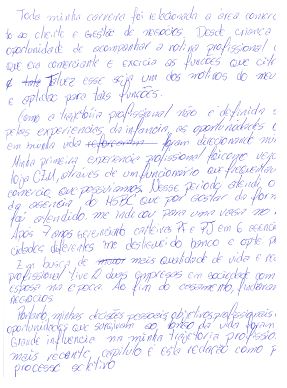 Toda minha carreira foi relacionada a área comerc
to ao cliente e gestão de negócios. Desde criança
oportunidade de acompanhar a rotina profissional
que era comerciante e exercia as funções que cite
Talvez esse seja um dos motivos do meu
e aptidão para tais funções.
Como a trajetória profissional não é definida s
pelas experiencias da infancia, as oportunidades e
em minha vida foram direcionando
Minha primeira experiencia profissional foi como
loja C&A, através de um funcionario que frequentava
comercio que possuiamos. Nesse periodo atendi o
da agencia do HSBC que por gostar da form
foi atendido me indicou para uma vaga no
Após 7 anos gerenciando carteiras PF e PJ em 6 agenci
cidades diferentes me desliguei do banco e optei p
Em busca de mais qualidade de vida e
profissional tive 2 duas empresas em sociedade com
esposa na época. Ao fim do casamento,
negócios.
Portanto, minhas decisões pessoais, objetivos profissionais
oportunidades que surgiram ao longo da vida foram
grande influencia na minha trajetória profissio
mais recente capítulo é esta redação como p
processo seletivo